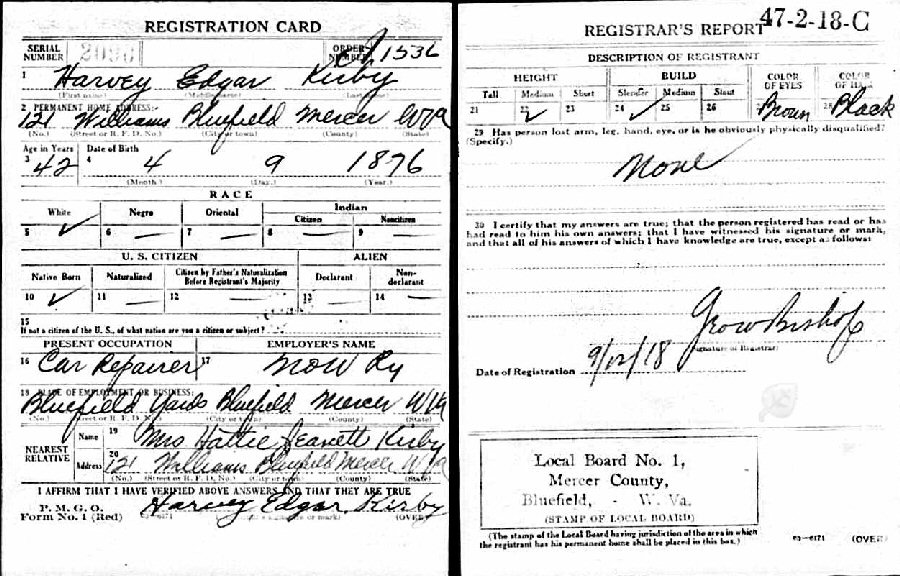 REGISTRATION CARD
SERIAL NUMBER
ORDER NUMBER 1536
1 Harvey Edgar Kirby
(First name) (Middle name) (Last name)
2 PERMANENT HOME ADDRESS:
121 Williams Bluefield Mercer W Va
(No.) (Street or R. F. D. No.) (City or town) (County) (State)
Age in Years Date of Birth
3 42 4 4 9 1876
(Month.) (Day.) (Year.)
RACE
White Negro Oriental Indian
Citizen Noncitizen
5 ✓ 6 — 7 — 8 — 9 —
U. S. CITIZEN ALIEN
Native Born Naturalized Citizen by Father's Naturalization Before Registrant's Majority Declarant Non-declarant
10 ✓ 11 — 12 — 13 — 14 —
15
If not a citizen of the U. S., of what nation are you a citizen or subject?
PRESENT OCCUPATION EMPLOYER'S NAME
16 Car Repairer 17 N&W Ry
18 PLACE OF EMPLOYMENT OR BUSINESS:
Bluefield Yards Bluefield Mercer W Va
(No.) (Street or R. F. D. No.) (City or town) (County) (State)
NEAREST RELATIVE
Name 19 Mrs Hattie Jeanett Kirby
Address 20 121 Williams Bluefield Mercer W Va
(No.) (Street or R. F. D. No.) (City or town) (County) (State)
I AFFIRM THAT I HAVE VERIFIED ABOVE ANSWERS AND THAT THEY ARE TRUE
P. M. G. O.
Form No. 1 (Red) 03—6171 Harvey Edgar Kirby
(Registrant's signature or mark) (OVER)
REGISTRAR'S REPORT 47-2-18-C
DESCRIPTION OF REGISTRANT
HEIGHT BUILD COLOR OF EYES COLOR OF HAIR
Tall Medium Short Slender Medium Stout
21 22 ✓ 23 24 ✓ 25 26 Brown 28 Black
29 Has person lost arm, leg, hand, eye, or is he obviously physically disqualified?
(Specify.)
None
30 I certify that my answers are true; that the person registered has read or has
had read to him his own answers; that I have witnessed his signature or mark,
and that all of his answers of which I have knowledge are true, except as follows:
Bishop
(Signature of Registrar)
Date of Registration 9/12/18
Local Board No. 1,
Mercer County,
Bluefield, - W. Va.
(STAMP OF LOCAL BOARD)
(The stamp of the Local Board having jurisdiction of the area in which
the registrant has his permanent home shall be placed in this box.)
03—6171 (OVER)